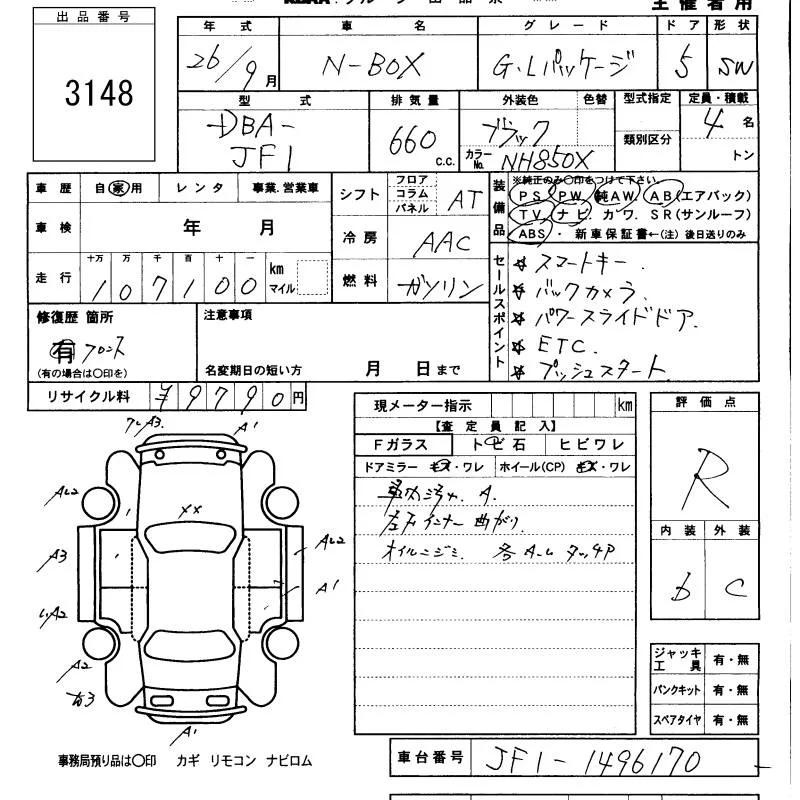 出品番号
3148
主催者用
年式 車名 グレード ドア 形状
26/9月 N-BOX G・Lパッケージ 5 SW
型式 排気量 外装色 色替 型式指定 定員・積載
DBA-JF1 660c.c. ブラック 類別区分 4名
カラーNo. NH850X トン
車歴 自家用 レンタ 事業.営業車
シフト フロア コラム パネル AT
装備品
※純正のみ○印をつけて下さい
PS PW 純AW. AB(エアバック)
TV. ナビ. カワ. SR(サンルーフ)
ABS ・ 新車保証書←(注)後日送りのみ
車検 年 月
冷房 AAC
走行 十万 万 千 百 十 一
107100 km マイル
燃料 ガソリン
セールスポイント
☆ スマートキー.
☆ バックカメラ.
☆ パワースライドドア.
☆ ETC.
☆ プッシュスタート
修復歴 箇所
有 フロント
(有の場合は○印を)
注意事項
名変期日の短い方 月 日まで
リサイクル料 ¥9790円
現メーター指示 km
【査定員記入】
Fガラス トビ石 ヒビワレ
ドアミラー キズ・ワレ ホイール(CP) キズ・ワレ
車内汚れ. A.
オイルニジミ
評価点
R
内装 外装
b C
A1
XX
AL2
A3
AL2
A1
A2
A2
A1
ジャッキ工具 有・無
パンクキット 有・無
スペアタイヤ 有・無
事務局預り品は○印 カギ リモコン ナビロム
車台番号 JF1-1496170